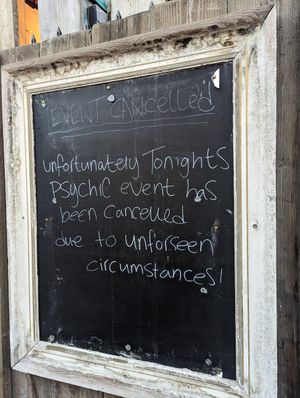 EVENT CANCELLED
unfortunately Tonights
Psychic event has
been cancelled
due to unforseen
circumstances!